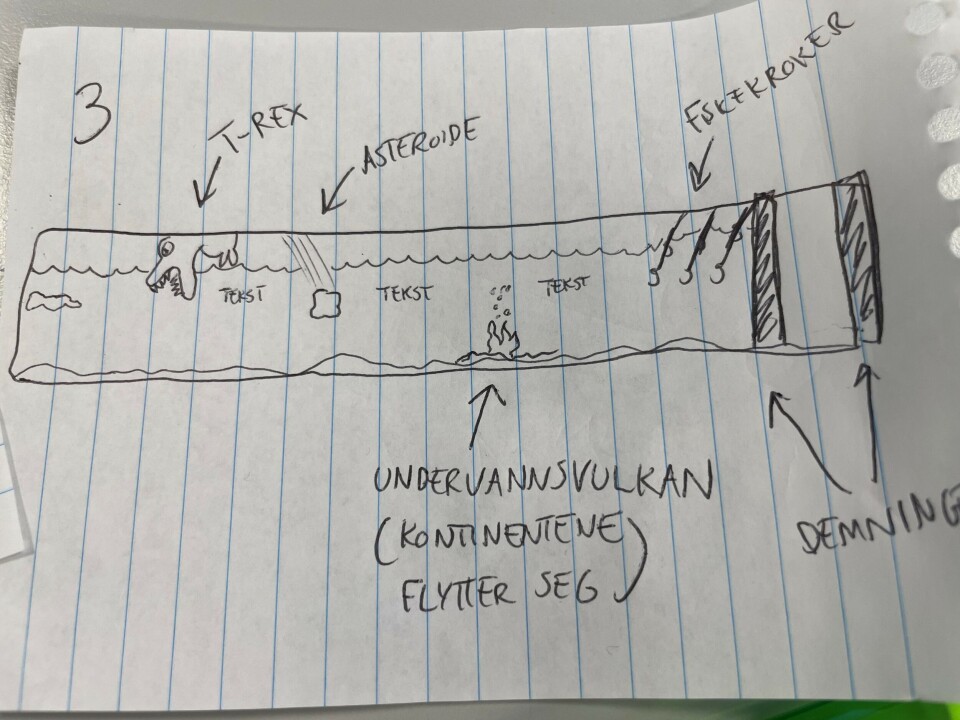 3
T-REX
ASTEROIDE
FISKEKROKER
TEKST
TEKST
TEKST
UNDERVANNSVULKAN
(KONTINENTENE
FLYTTER SEG)